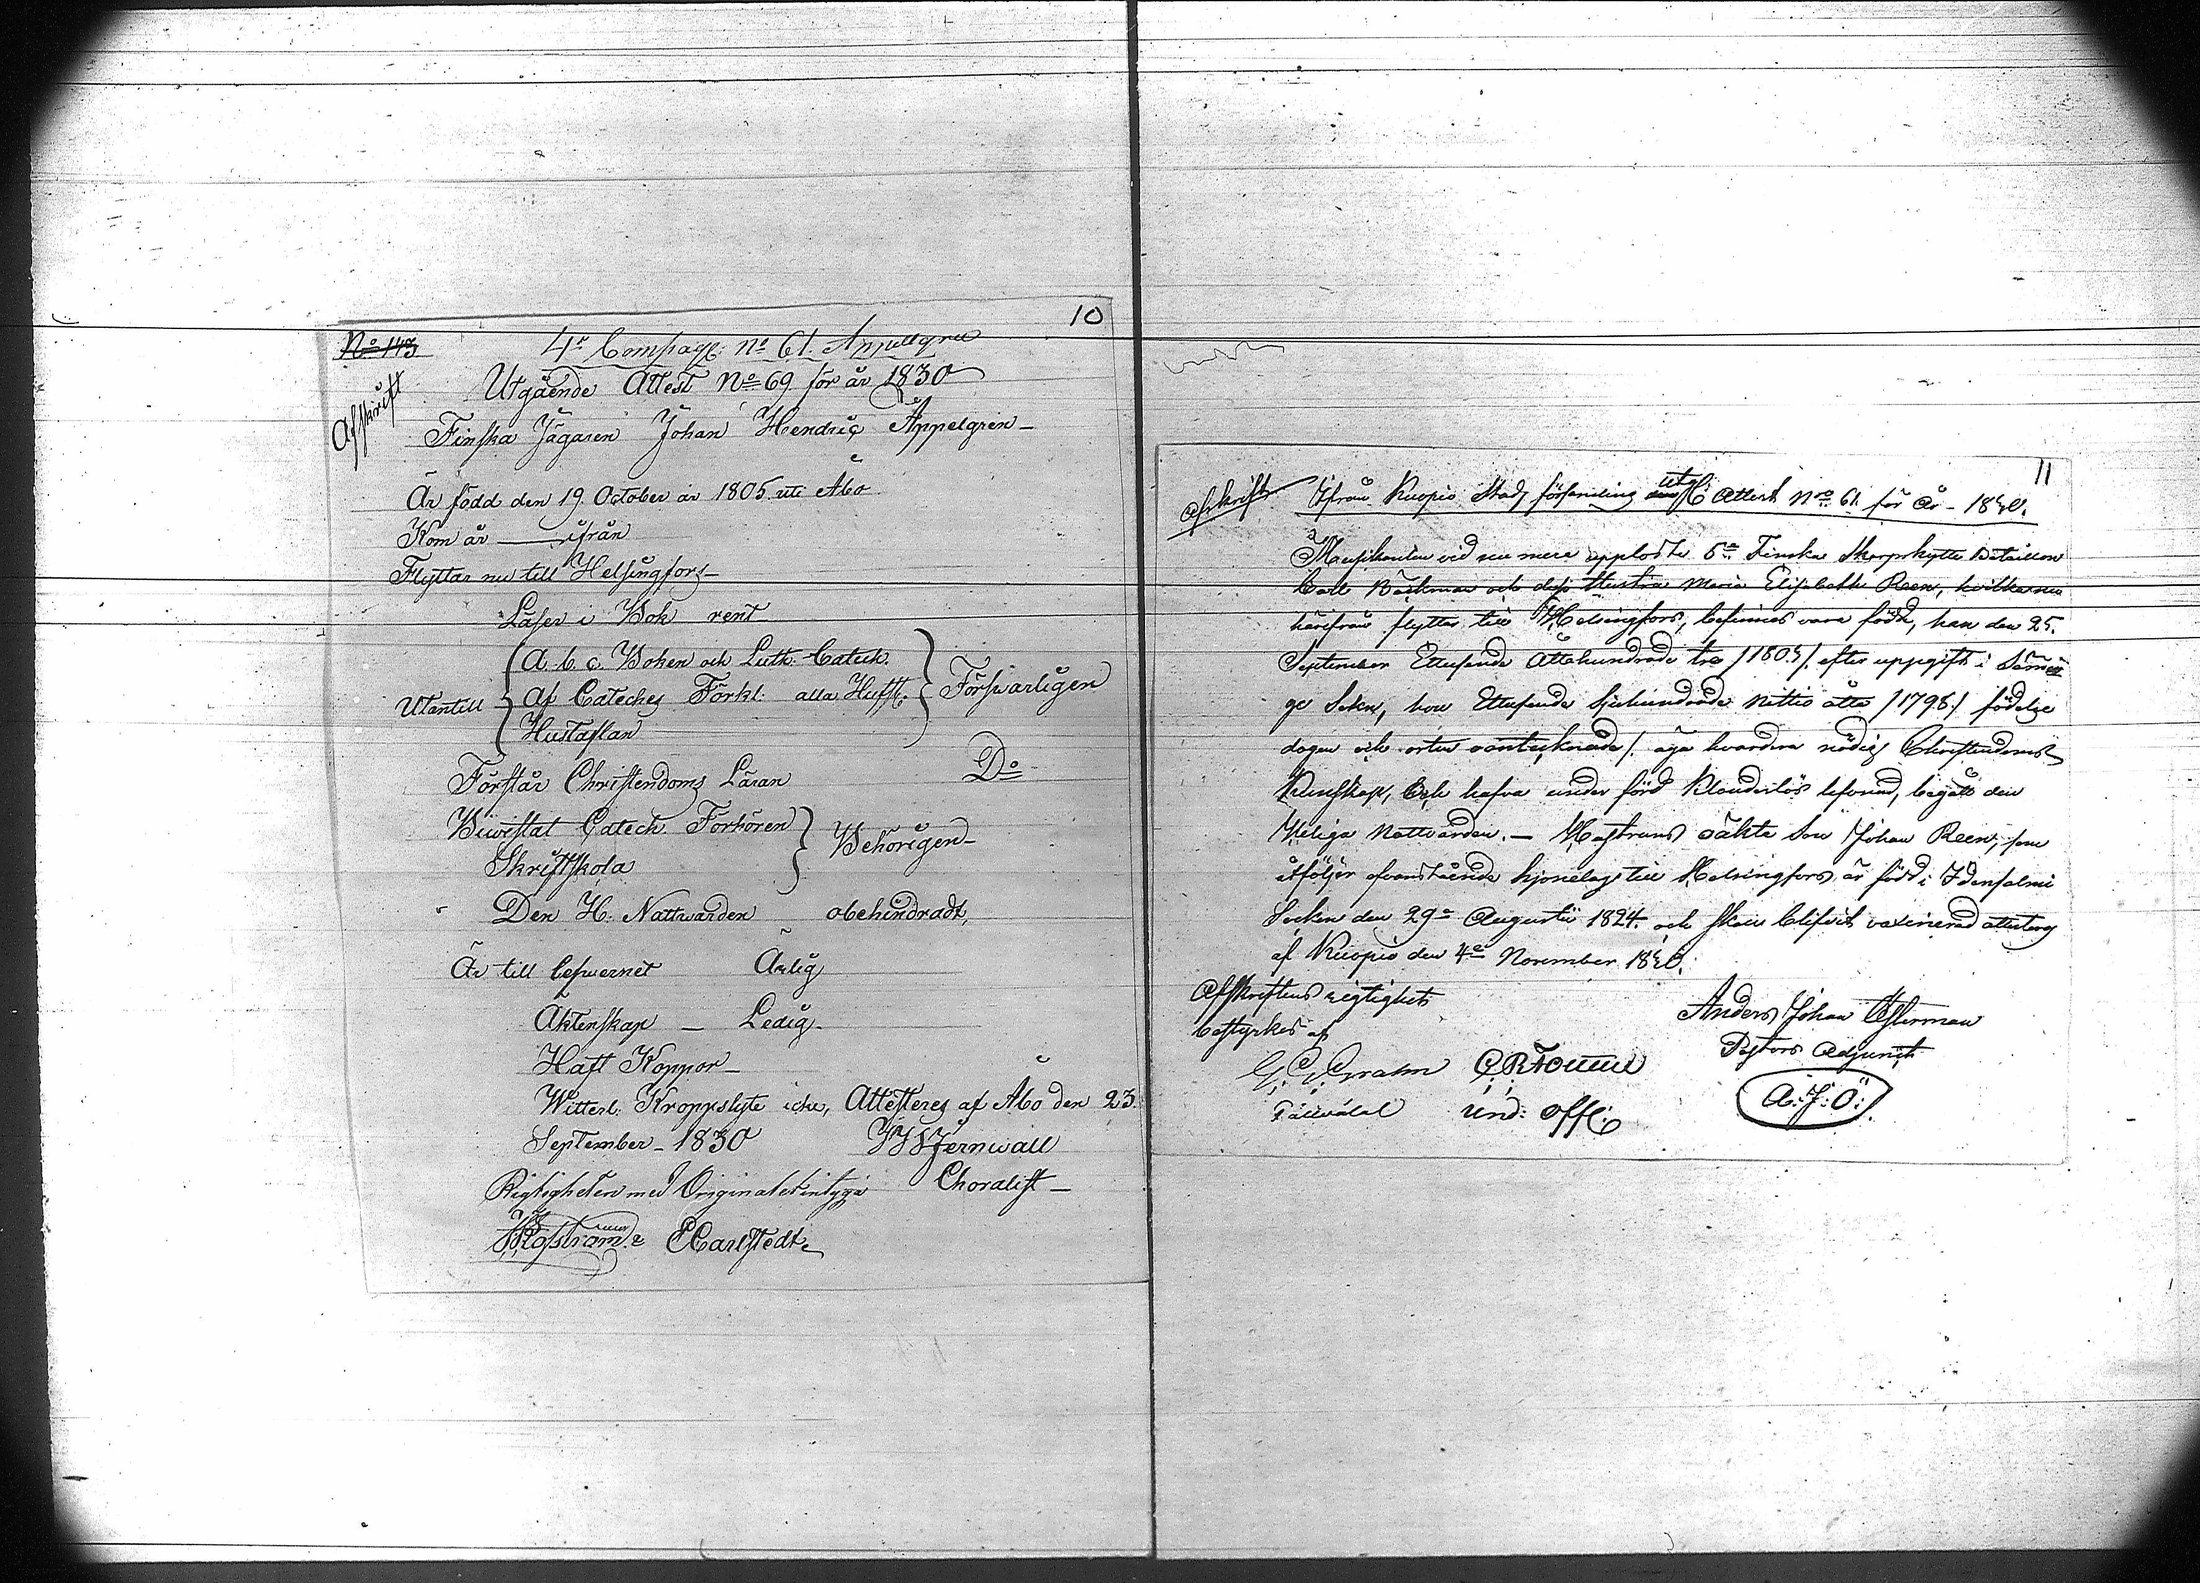 10
No 143
4e Compagl: No 61. Appellgren
Afskrift
Utgående Attest No 69 för år 1830
Finska Jägaren Johan Hendric Appelgren
Är född den 19 October år 1805 uti Åbo
Kom år — ifrån
Flyttar nu till Helsingfors
Läser i Bok rent
Utantill
A. b. c. Boken och Luth. Catech.
Af Cateches Förkl. alla Hufst. Förswarligen
Hustaflan
Förstår Christendoms Läran Do
Biwistat Catech. Förhören
Behörigen
Skriftskola
Den H. Nattwarden obehindradt,
Är till lefwernet Ärlig
Äktenskap — Ledig
Haft Koppor
Witterl. Kroppslyte icke, Attesteres af Åbo den 23.
September 1830 Jernwall
Choralist
Rigtigheten med Originalet intyga
CCarlstedt
11
Afskrift
Ifrån Kuopio Stads församling utg Attest No 61 för år 1830.
Musikanten vid nu mera upplöste 6e Finska Skarpskytte Bataillon
Carl Bäckman och dess Hustru Maria Elisabeth Reen, hvilka nu
härifrån flyttar till Helsingfors, befinnes vara född, han den 25.
September Ettusende Åttahundrade tre /1803/ efter uppgift i
ge Sokn, hon Ettusende Sjuhundrade Nettio åtta /1798/ födelse
dagen och orten oantecknade/. äga hvardera nödig Christendoms
Kunskap, Och hafva under förd Klanderlös lefvnad, begått den
Heliga Nattvarden. — Hustruns oäkta Son Johan Reen, som
åtföljer ofvanstående hjonelag till Helsingfors är född i Idensalmi
Socken den 29e Augusti 1824. och skall blifvit vaxinerad attesteras
af Kuopio den 4e November 1830.
Afskriftens rigtighet
bestyrkes af
Anders Johan Österman
Pastors Adjunct
Grahn
Und: Offc:
A: J: Ö: